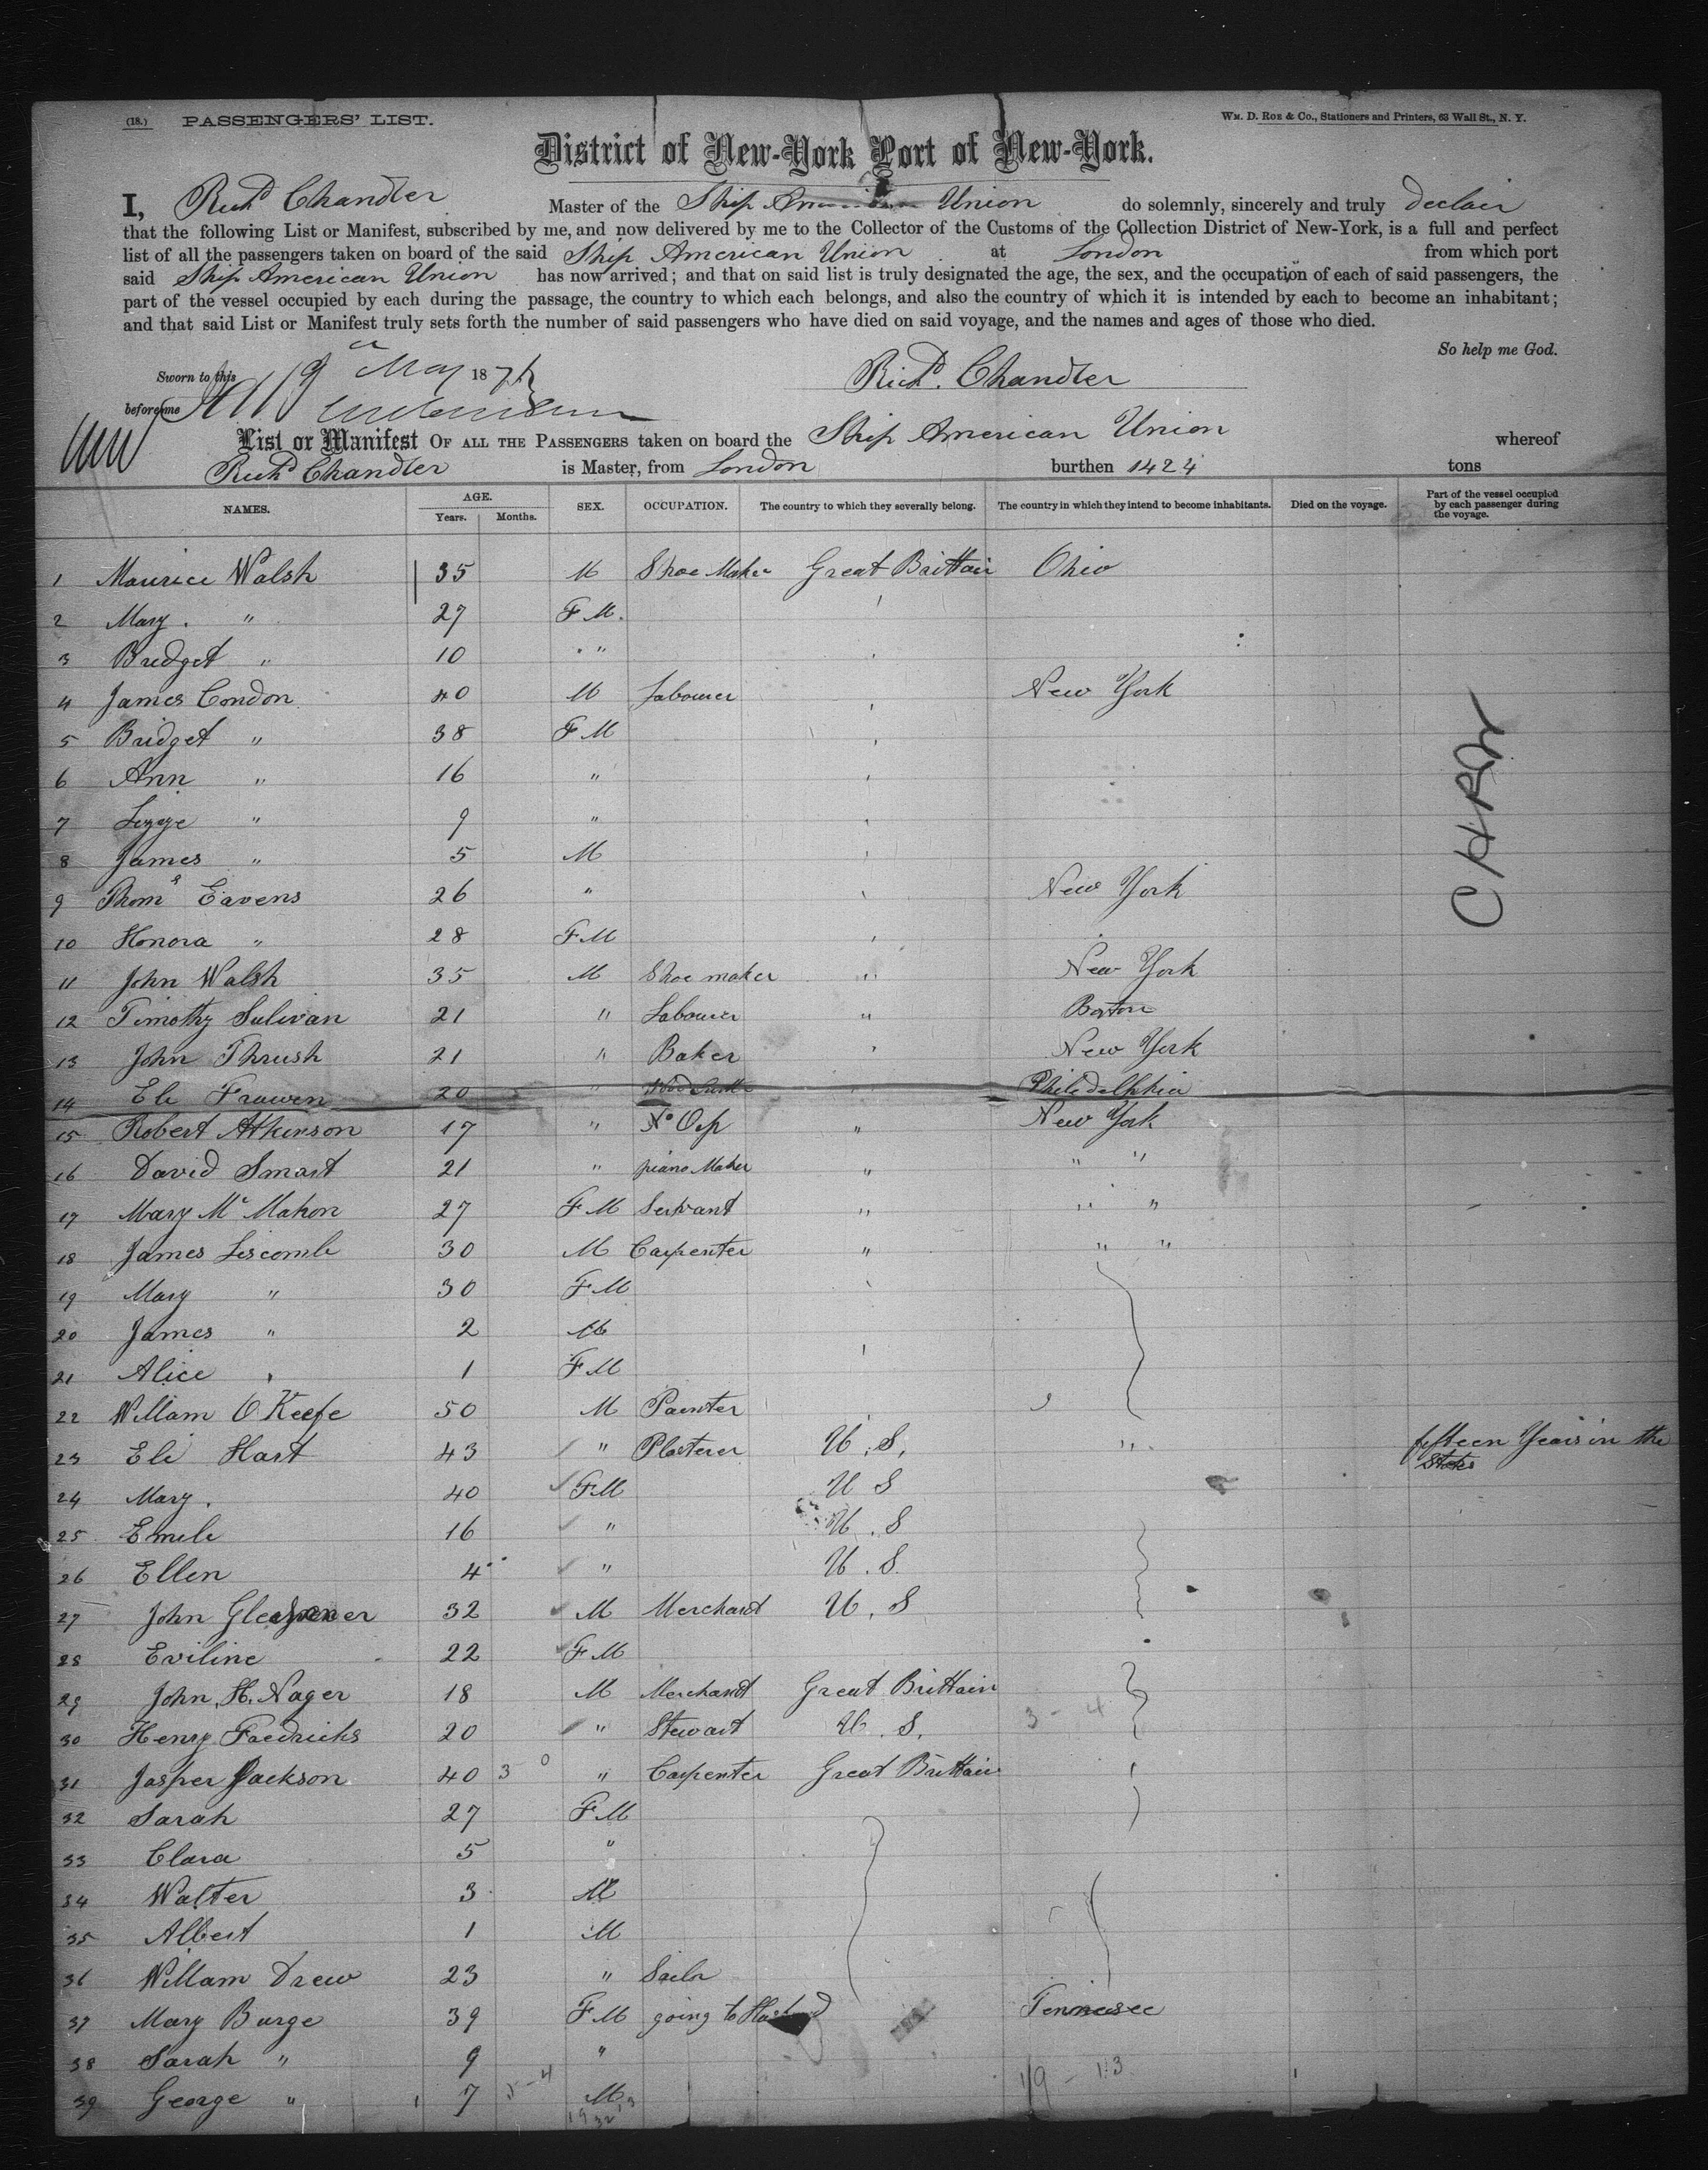 (18.) PASSENGERS' LIST. Wm. D. Roe & Co., Stationers and Printers, 63 Wall St., N. Y.
District of New-York Port of New-York.
I, Richd Chandler Master of the Ship American Union do solemnly, sincerely and truly declair
that the following List or Manifest, subscribed by me, and now delivered by me to the Collector of the Customs of the Collection District of New-York, is a full and perfect
list of all the passengers taken on board of the said Ship American Union at London from which port
said Ship American Union has now arrived; and that on said list is truly designated the age, the sex, and the occupation of each of said passengers, the
part of the vessel occupied by each during the passage, the country to which each belongs, and also the country of which it is intended by each to become an inhabitant;
and that said List or Manifest truly sets forth the number of said passengers who have died on said voyage, and the names and ages of those who died.
So help me God.
Sworn to this 9 May 187
before me
Richd. Chandler
List or Manifest OF ALL THE PASSENGERS taken on board the Ship American Union whereof
Richd Chandler is Master, from London burthen 1424 tons
NAMES. AGE. Years. Months. SEX. OCCUPATION. The country to which they severally belong. The country in which they intend to become inhabitants. Died on the voyage. Part of the vessel occupied by each passenger during the voyage.
1 Maurice Walsh 35 M Shoe Maker Great Brittain Ohio
2 Mary " 27 F M
3 Bridget " 10 "
4 James Condon 40 M Labourer New York
5 Bridget " 38 F M
6 Ann " 16 "
7 Lizzie " 9 "
8 James " 5 M
9 Thoms Eavens 26 " New York
10 Honora " 28 F M
11 John Walsh 35 M Shoe maker " New York
12 Timothy Sulivan 21 " Labourer " Boston
13 John Thrush 21 " Baker New York
14 Eli Frawen 20 " Philidelphia
15 Robert Atkinson 17 " No Ocp " New York
16 David Smart 21 " piano Maker " " "
17 Mary Mc Mahon 27 F M Servant " " "
18 James Liscomb 30 M Carpenter " " "
19 Mary " 30 F M
20 James " 2 M
21 Alice " 1 F M
22 Willam O Keefe 50 M Painter
23 Eli Hart 43 " Plasterer U. S. " fifteen Years in the
States
24 Mary. 40 F M U S
25 Emile 16 " U. S
26 Ellen 4 " U. S.
27 John 32 M Merchant U. S
28 Eviline 22 F M
29 John. H. Nager 18 M Merchant Great Brittain
30 Henry Fredricks 20 " Stewart U. S. 3 - 4
31 Jasper Jackson 40 3 0 " Carpenter Great Brittain
32 Sarah 27 F M
33 Clara 5 "
34 Walter 3 M
35 Albert 1 M
36 Willam Drew 23 " Sailor
37 Mary Burge 39 F M going to Husband Tennesee
38 Sarah " 9 "
39 George " 7 M 19 - 13